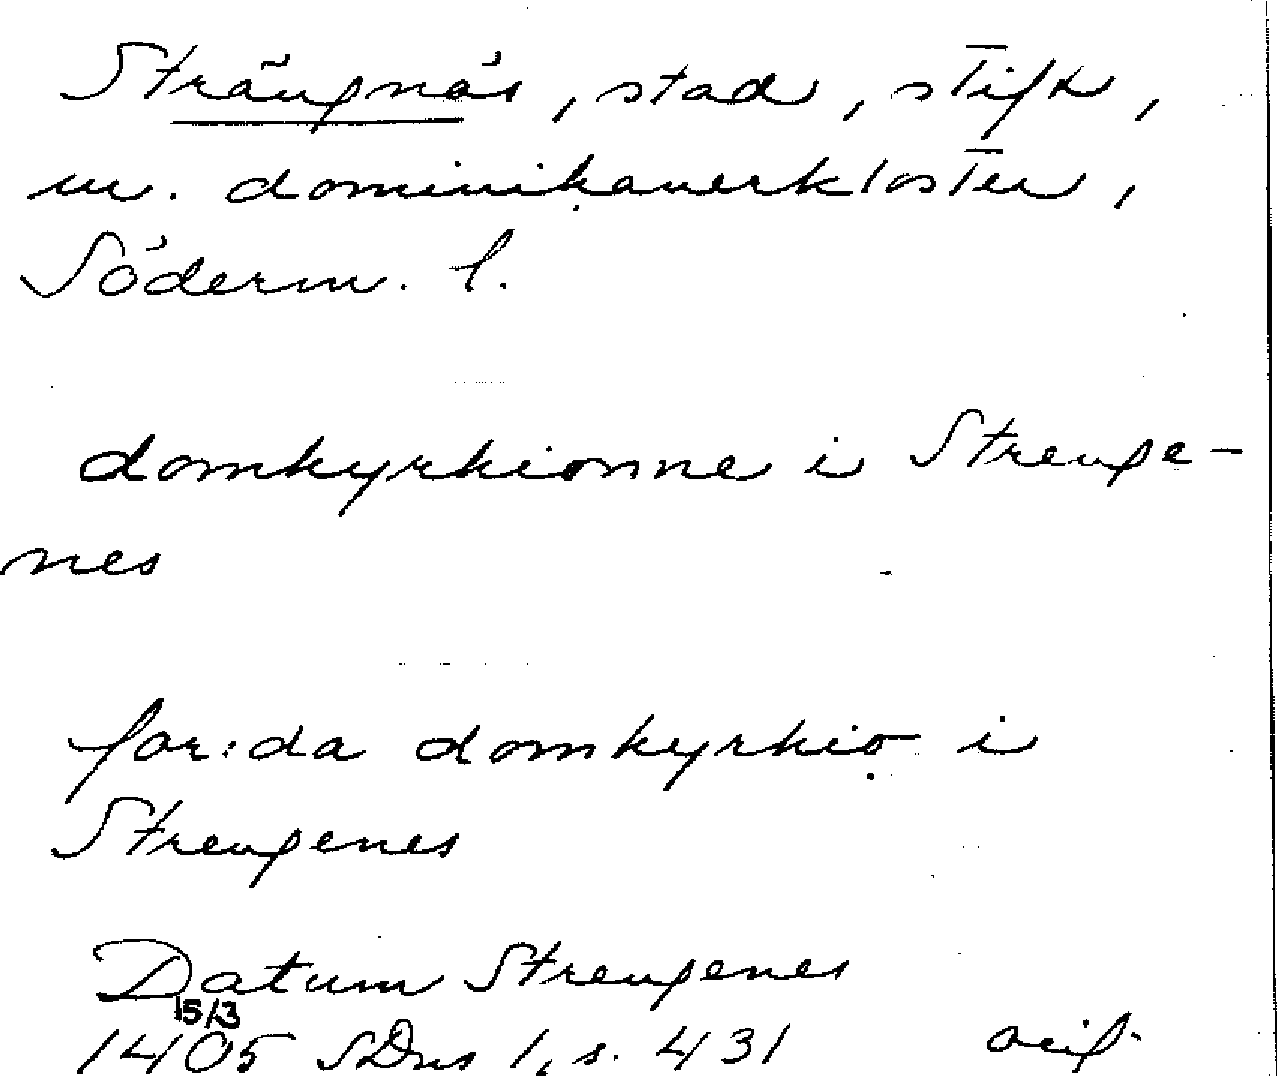 Strängnäs, stad, stift,
m. dominikanerkloster,
Söderm. l.
domkyrkionne i Strenge-
nes
for:da domkyrkio i
Strengenes
Datum Strengenes
15/3
1405 SDns 1, s. 431 orig.